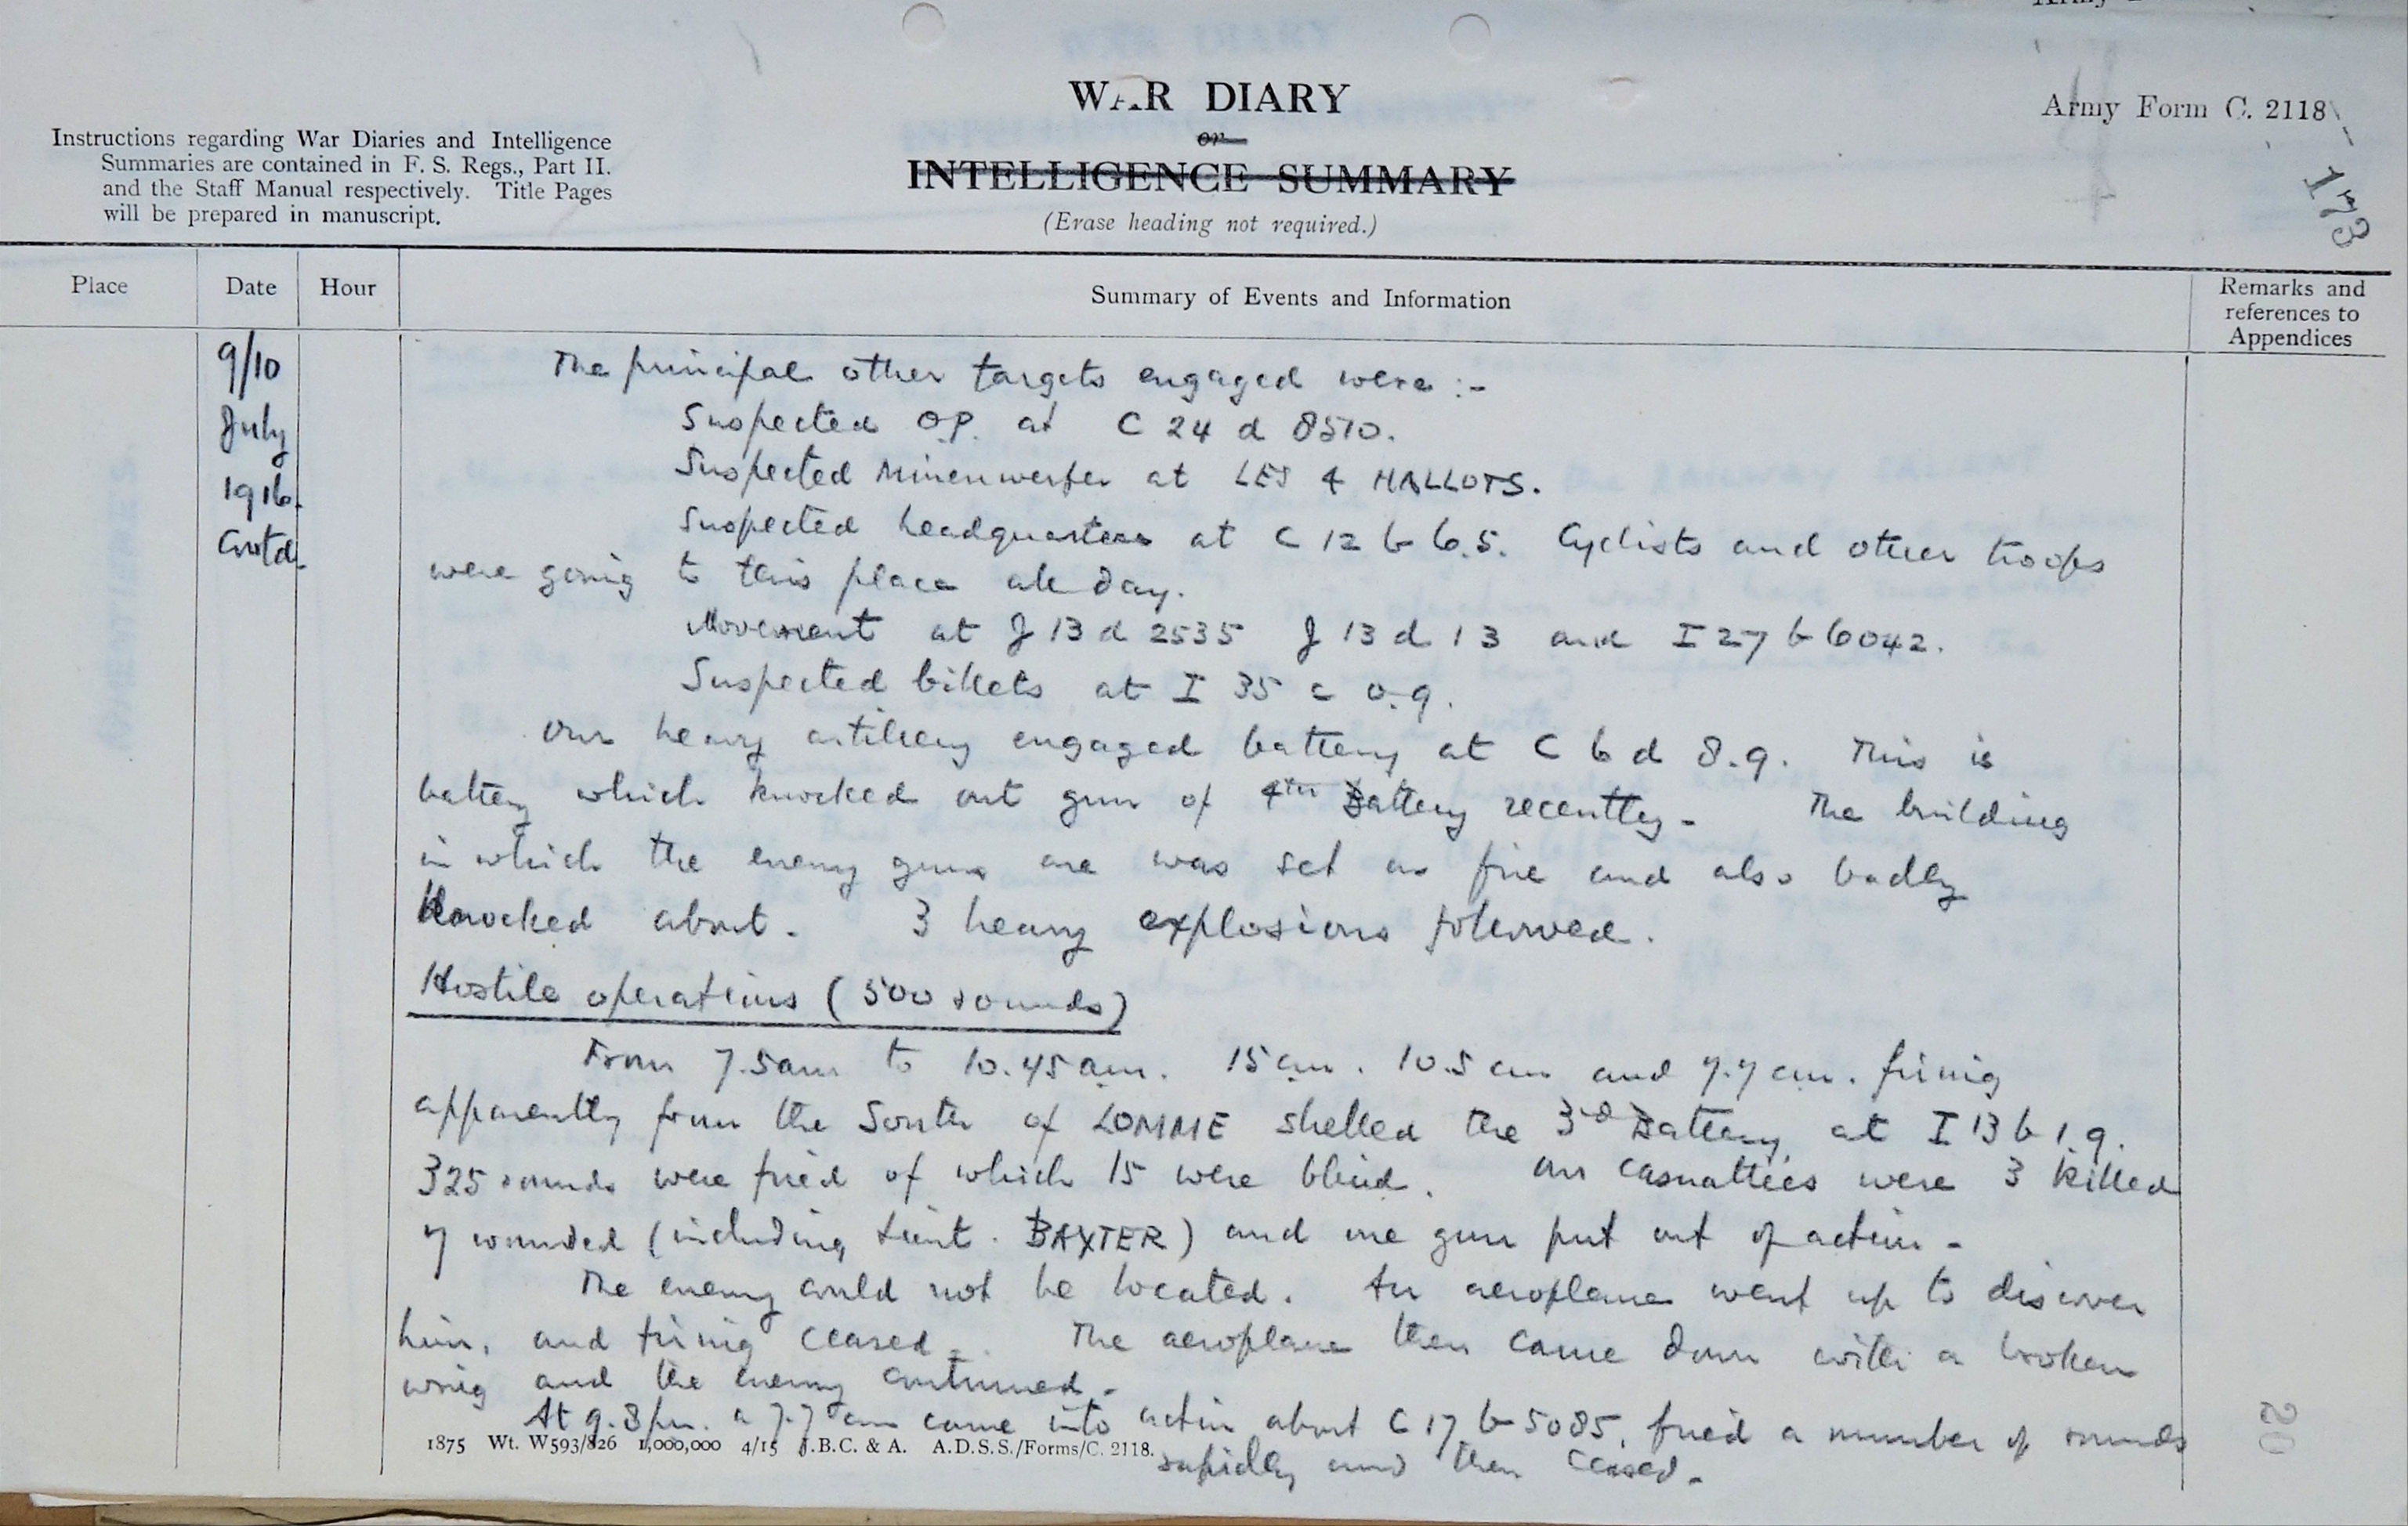 WAR DIARY
or
INTELLIGENCE SUMMARY
(Erase heading not required.)
Army Form C. 2118
173
Instructions regarding War Diaries and Intelligence
Summaries are contained in F. S. Regs., Part II.
and the Staff Manual respectively. Title Pages
will be prepared in manuscript.
Place Date Hour Summary of Events and Information Remarks and
references to
Appendices
9/10
July
1916.
Contd.
The principal other targets engaged were :-
Suspected O.P. at C 24 d 8510.
Suspected Minenwerfer at LES 4 HALLOTS.
Suspected headquarters at C 12 b 6.5. Cyclists and other troops
were going to this place all day.
Movement at J 13 d 2535 J 13 d 13 and I 27 b 6042.
Suspected billets at I 35 c 0.9.
Our heavy artillery engaged battery at C 6 d 8.9. This is
battery which knocked out gun of 4th Battery recently - The building
in which the enemy guns are was set on fire and also badly
Knocked about. 3 heavy explosions followed.
Hostile operations (500 rounds)
From 7.5am to 10.45am. 15cm. 10.5cm and 7.7cm. firing
apparently from the South of LOMME shelled the 3rd Battery at I 13 b 1.9.
325 rounds were fired of which 15 were blind. Our casualties were 3 killed
7 wounded (including Lieut. BAXTER) and one gun put out of action -
The enemy could not be located. An aeroplane went up to discover
him, and firing ceased. The aeroplane then came down with a broken
wing and the enemy continued -
At 9.8pm. a 7.7cm came into action about C 17 b 5085, fired a number of rounds
rapidly and then ceased -
1875 Wt. W593/826 1,000,000 4/15 J.B.C. & A. A.D.S.S./Forms/C. 2118.
20